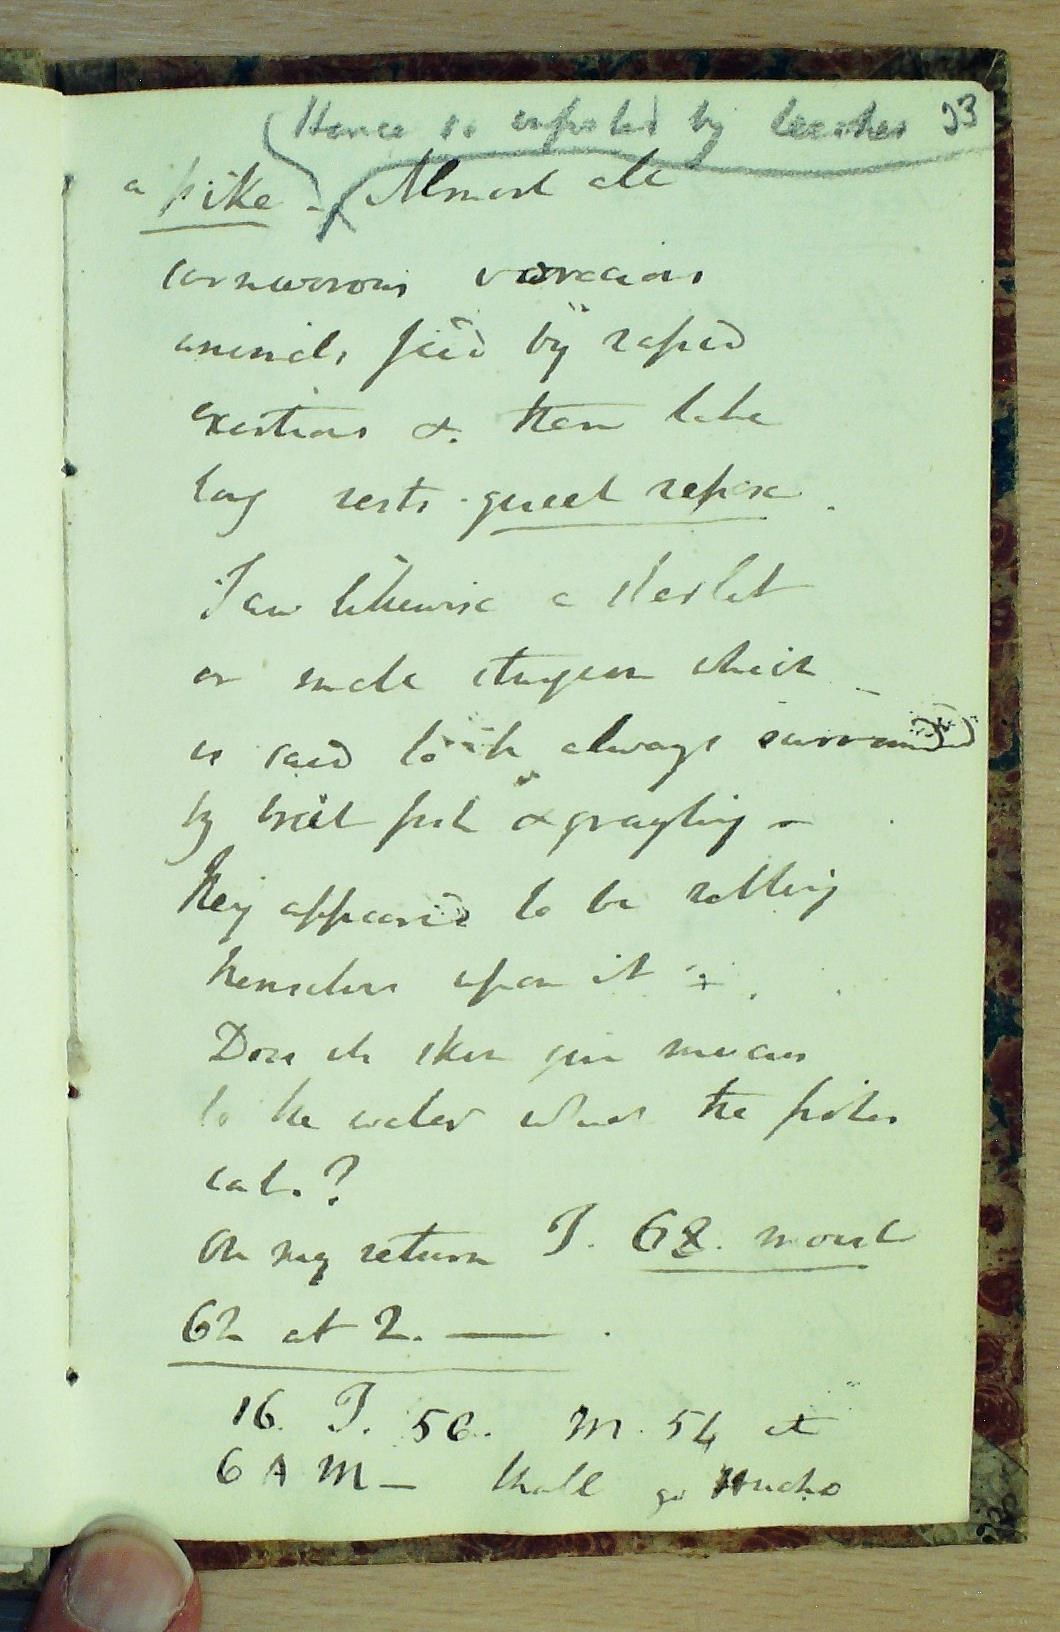 Hence is infested by leeches 93
a pike - Almost all
carnivorous voracious
animals feed by rapid
exertions & then take
long rests - quiet repose.
I saw likewise a sterlet
or small sturgeon which
is said to be always surrounded
by trout fish & grayling -
They appeared to be rubbing
themselves upon it.
Does its skin give mucus
to the water which the fishes
eat.?
On my return T. 68. moist
62 at 2. —
16. T. 56. M. 54 at
6 AM - shall go Hucho